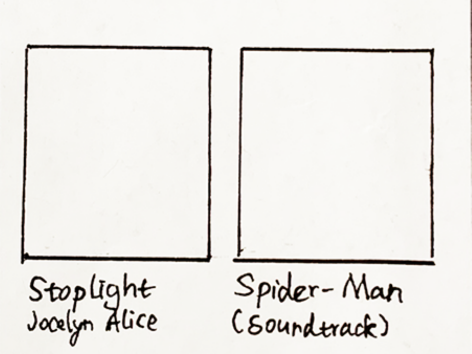 Stoplight
Jocelyn Alice
Spider-Man
(Soundtrack)